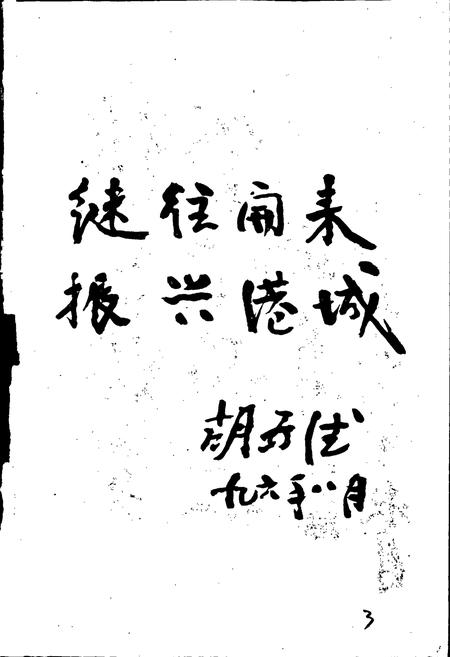 继往开来
振兴港城
胡万佳
九六年八月
3